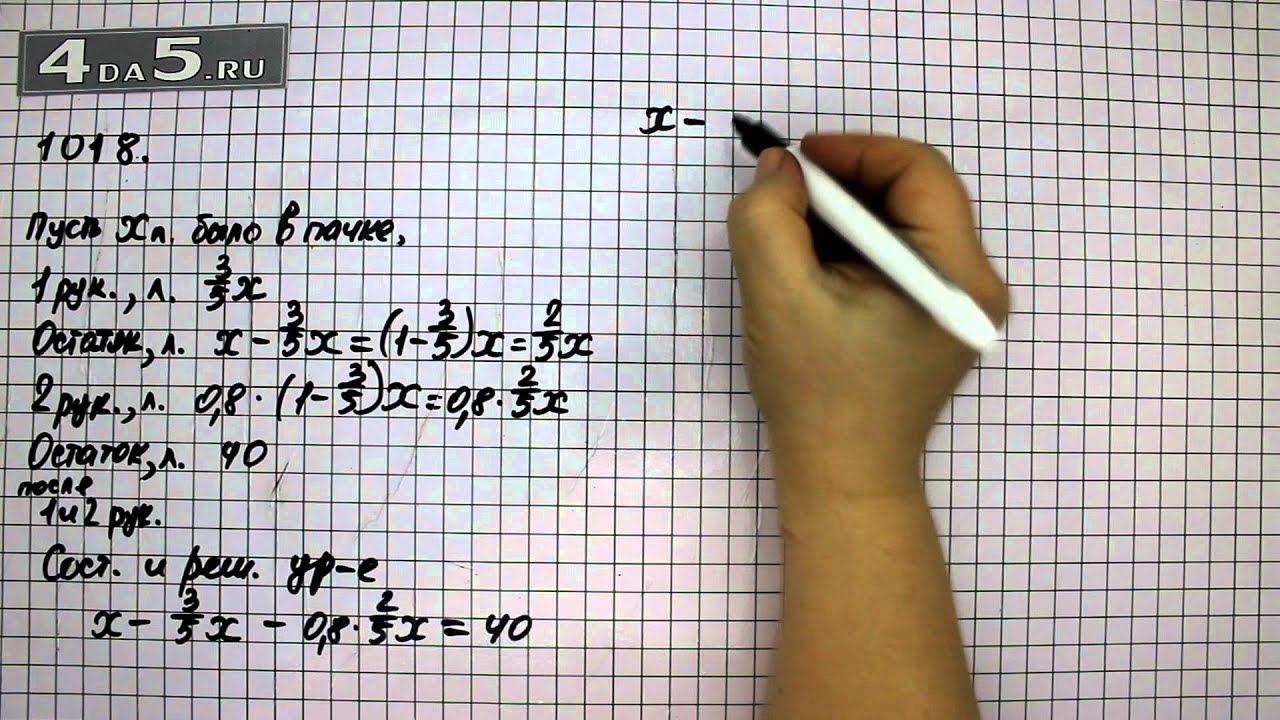 4DA5.RU
1018.
Пусть x л. было в пачке,
1 рук., л. 3/5 x
Остаток, л. x - 3/5 x = (1 - 3/5) x = 2/5 x
2 рук., л. 0,8 · (1 - 3/5) x = 0,8 · 2/5 x
Остаток, л. 40
после
1 и 2 рук.
Сост. и реш. ур-е
x - 3/5 x - 0,8 · 2/5 x = 40
x -